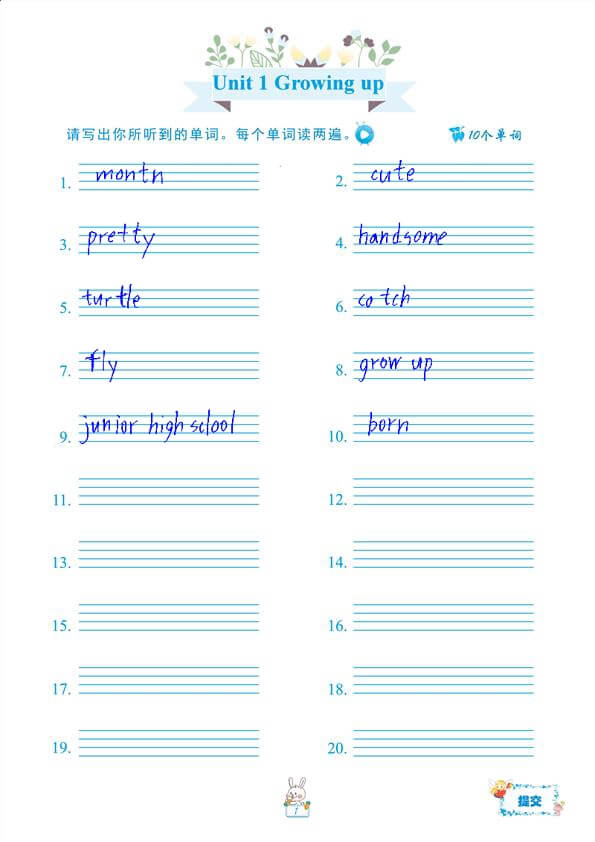 Unit 1 Growing up
请写出你所听到的单词。每个单词读两遍。
10个单词
1. montn
2. cute
3. pretty
4. handsome
5. turtle
6. cotch
7. fly
8. grow up
9. junior high sclool
10. born
11.
12.
13.
14.
15.
16.
17.
18.
19.
20.
1
提交